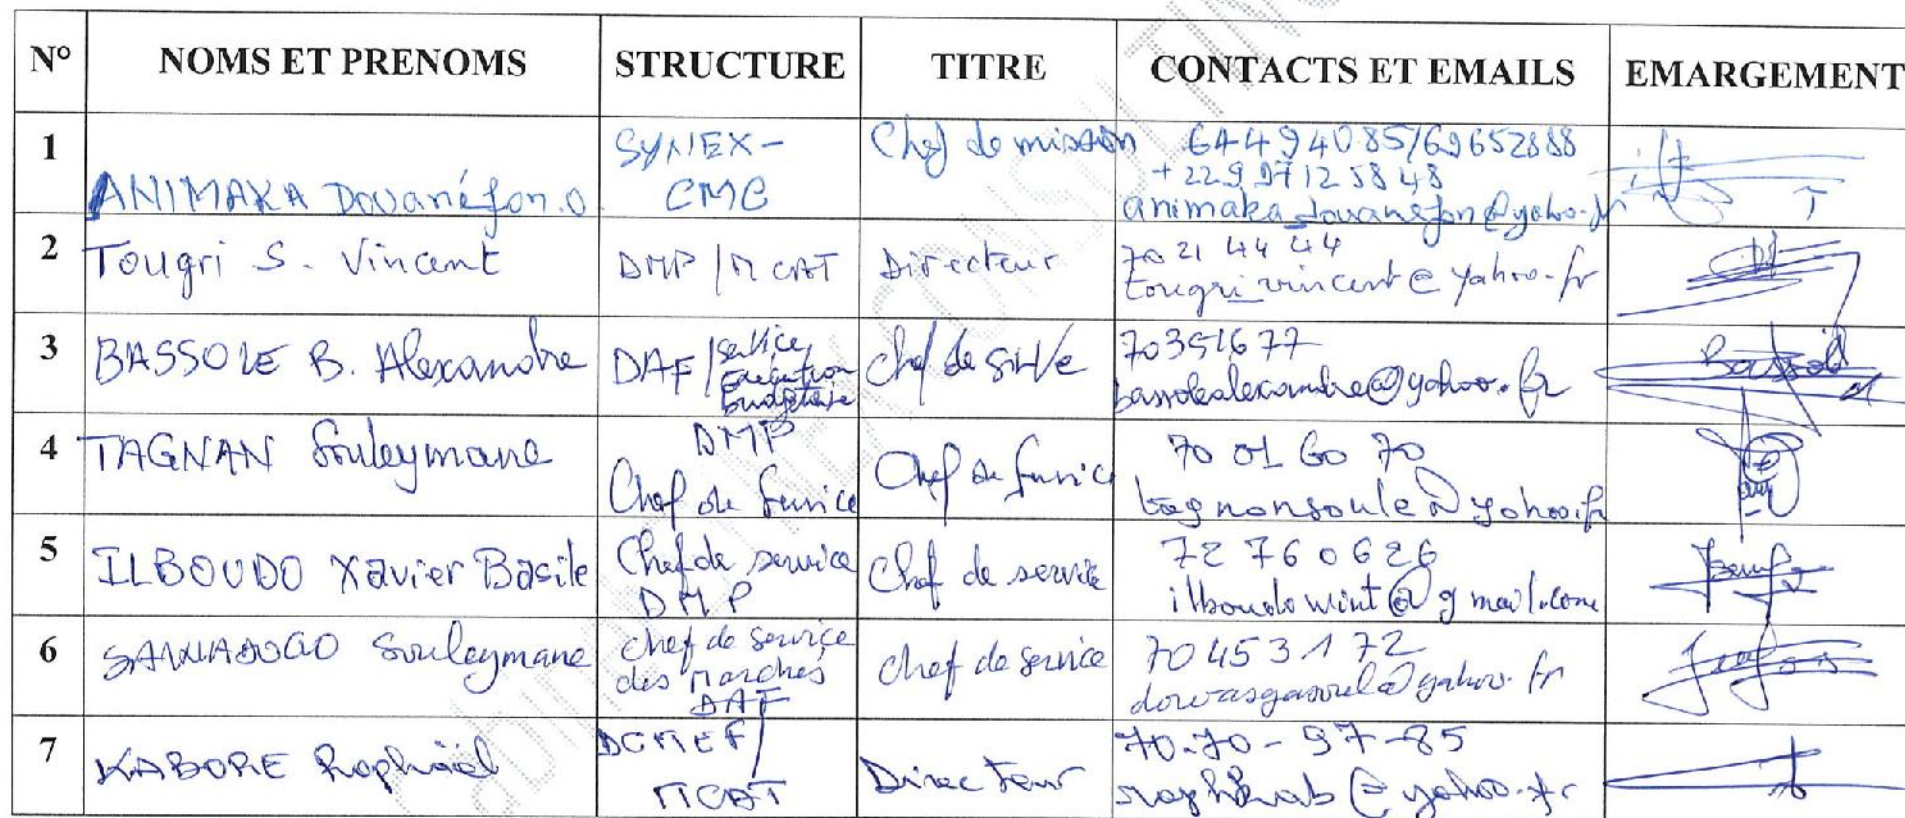 N° NOMS ET PRENOMS STRUCTURE TITRE CONTACTS ET EMAILS EMARGEMENT
1 ANIMAKA Douanéfon.O SYNEX- CMC Chef de mission 64494085/69652888
+229 97125848
animaka_douanefon@yahoo.fr
2 Tougri S. Vincent DMP/MCAT Directeur 70 21 44 44
tougri_vincent@yahoo.fr
3 BASSOLE B. Alexandre DAF/service Exécution budgétaire Chef de 70351677
bassolealexandre@yahoo.fr
4 TAGNAN Souleymane DMP
Chef de Service Chef de Service 70 01 60 70
tagnansoule@yahoo.fr
5 ILBOUDO Xavier Basile Chef de service
DMP Chef de service 72 76 06 26
ilboudowint@gmail.com
6 SAWADOGO Souleymane chef de service
des Marchés
DAF chef de service 70453172
@yahoo.fr
7 KABORE Raphaël DCMEF/
MCAT Directeur 70-70-97-85
@yahoo.fr